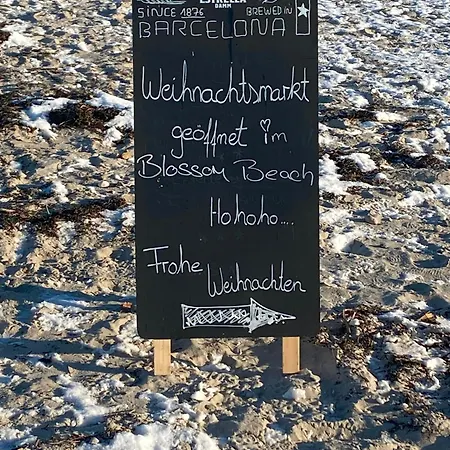 ESTRELLA
DAMM
SINCE 1876
BREWED IN
BARCELONA
Weihnachtsmarkt
geöffnet im
Blossom Beach
Hohoho....
Frohe
Weihnachten